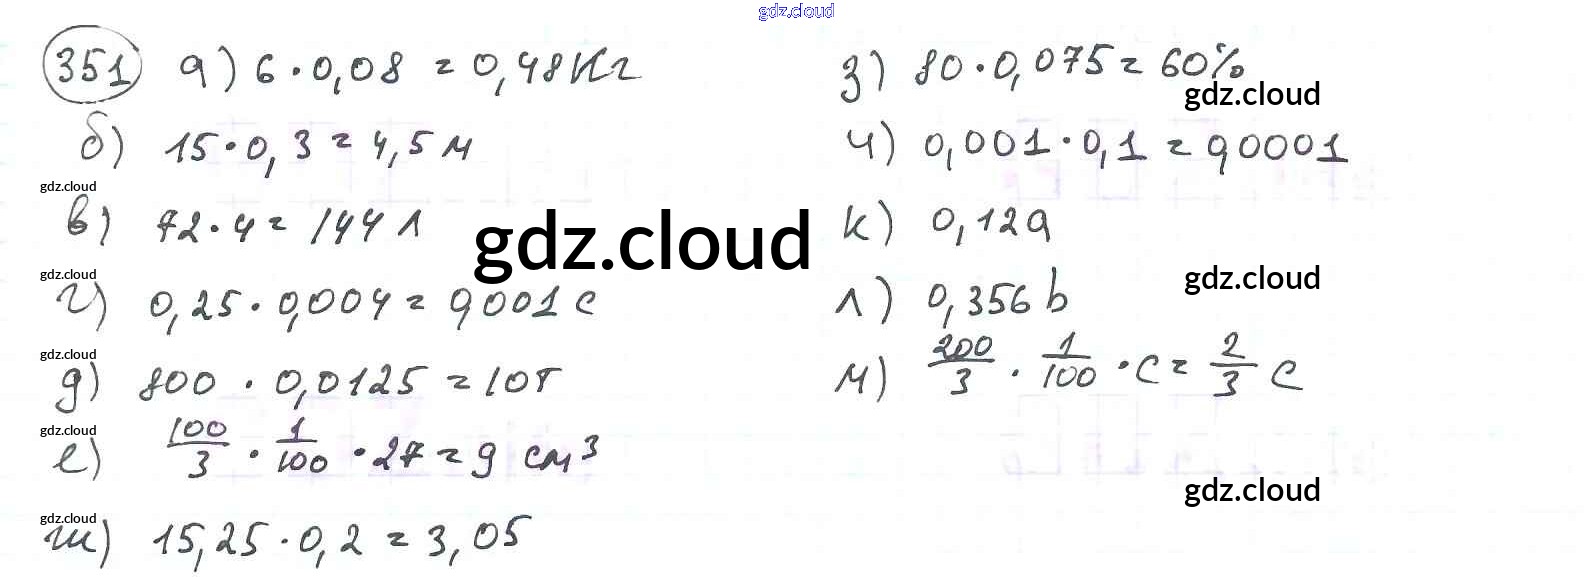 gdz.cloud
351 а) 6 · 0,08 = 0,48 Кг
б) 15 · 0,3 = 4,5 м
gdz.cloud
в) 72 · 4 = 144 л
gdz.cloud
gdz.cloud
г) 0,25 · 0,004 = 0,001 с
gdz.cloud
д) 800 · 0,0125 = 10т
gdz.cloud
е) 100/3 · 1/100 · 27 = 9 см³
gdz.cloud
ж) 15,25 · 0,2 = 3,05
з) 80 · 0,075 = 60%
gdz.cloud
и) 0,001 · 0,1 = 0,0001
к) 0,12a
gdz.cloud
л) 0,356 b
м) 200/3 · 1/100 · c = 2/3 c
gdz.cloud